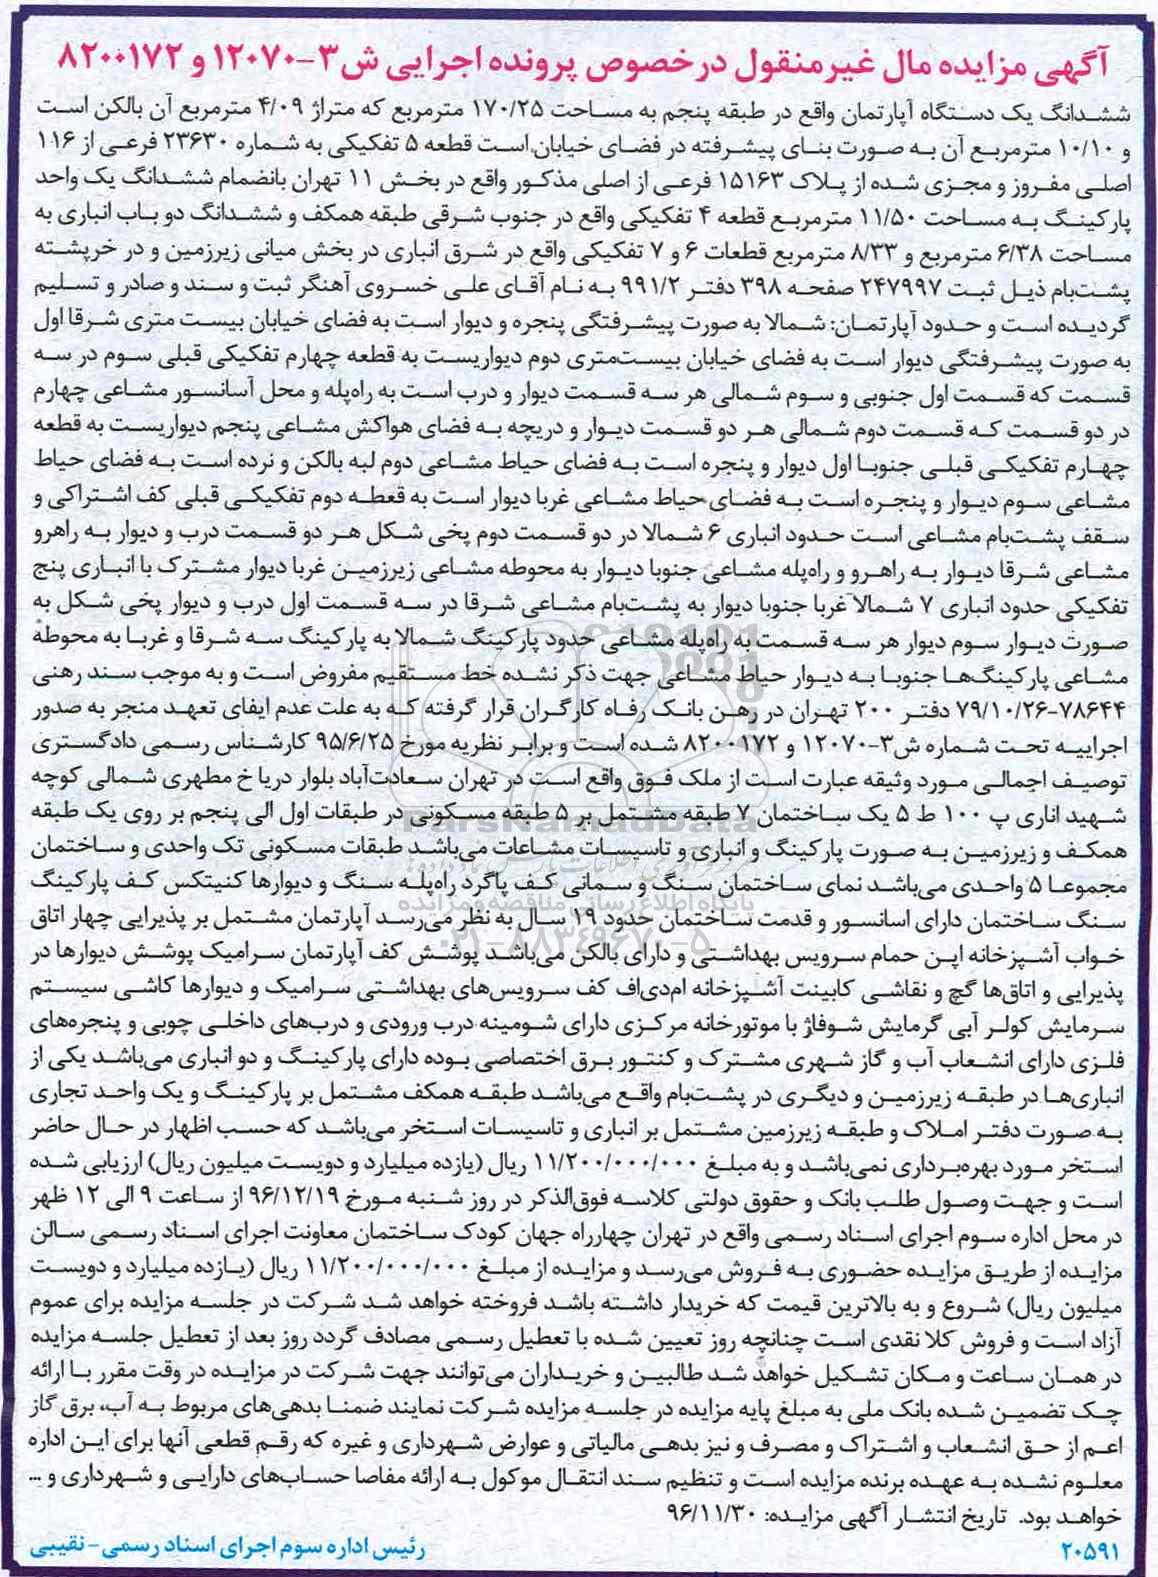 آگهی مزایده مال غیرمنقول درخصوص پرونده اجرایی ش۳-۱۲۰۷۰ و ۸۲۰۰۱۷۲
ششدانگ یک دستگاه آپارتمان واقع در طبقه پنجم به مساحت ۱۷۰/۲۵ مترمربع که متراژ ۴/۰۹ مترمربع آن بالکن است
و ۱۰/۱۰ مترمربع آن به صورت بنای پیشرفته در فضای خیابان است قطعه ۵ تفکیکی به شماره ۲۳۶۳۰ فرعی از ۱۱۶
اصلی مفروز و مجزی شده از پلاک ۱۵۱۶۳ فرعی از اصلی مذکور واقع در بخش ۱۱ تهران بانضمام ششدانگ یک واحد
پارکینگ به مساحت ۱۱/۵۰ مترمربع قطعه ۴ تفکیکی واقع در جنوب شرقی طبقه همکف و ششدانگ دو باب انباری به
مساحت ۶/۳۸ مترمربع و ۸/۳۳ مترمربع قطعات ۶ و ۷ تفکیکی واقع در شرق انباری در بخش میانی زیرزمین و در خرپشته
پشت‌بام ذیل ثبت ۲۴۷۹۹۷ صفحه ۳۹۸ دفتر ۹۹۱/۲ به نام آقای علی خسروی آهنگر ثبت و سند و صادر و تسلیم
گردیده است و حدود آپارتمان: شمالا به صورت پیشرفتگی پنجره و دیوار است به فضای خیابان بیست متری شرقا اول
به صورت پیشرفتگی دیوار است به فضای خیابان بیست‌متری دوم دیواریست به قطعه چهارم تفکیکی قبلی سوم در سه
قسمت که قسمت اول جنوبی و سوم شمالی هر سه قسمت دیوار و درب است به راه‌پله و محل آسانسور مشاعی چهارم
در دو قسمت که قسمت دوم شمالی هر دو قسمت دیوار و دریچه به فضای هواکش مشاعی پنجم دیواریست به قطعه
چهارم تفکیکی قبلی جنوبا اول دیوار و پنجره است به فضای حیاط مشاعی دوم لبه بالکن و نرده است به فضای حیاط
مشاعی سوم دیوار و پنجره است به فضای حیاط مشاعی غربا دیوار است به قعطه دوم تفکیکی قبلی کف اشتراکی و
سقف پشت‌بام مشاعی است حدود انباری ۶ شمالا در دو قسمت دوم پخی شکل هر دو قسمت درب و دیوار به راهرو
مشاعی شرقا دیوار به راهرو و راه‌پله مشاعی جنوبا دیوار به محوطه مشاعی زیرزمین غربا دیوار مشترک با انباری پنج
تفکیکی حدود انباری ۷ شمالا غربا جنوبا دیوار به پشت‌بام مشاعی شرقا در سه قسمت اول درب و دیوار پخی شکل به
صورت دیوار سوم دیوار هر سه قسمت به راه‌پله مشاعی حدود پارکینگ شمالا به پارکینگ سه شرقا و غربا به محوطه
مشاعی پارکینگ‌ها جنوبا به دیوار حیاط مشاعی جهت ذکر نشده خط مستقیم مفروض است و به موجب سند رهنی
۷۸۶۴۴-۷۹/۱۰/۲۶ دفتر ۲۰۰ تهران در رهن بانک رفاه کارگران قرار گرفته که به علت عدم ایفای تعهد منجر به صدور
اجراییه تحت شماره ش۳-۱۲۰۷۰ و ۸۲۰۰۱۷۲ شده است و برابر نظریه مورخ ۹۵/۶/۲۵ کارشناس رسمی دادگستری
توصیف اجمالی مورد وثیقه عبارت است از ملک فوق واقع است در تهران سعادت‌آباد بلوار دریا خ مطهری شمالی کوچه
شهید اناری پ ۱۰۰ ط ۵ یک ساختمان ۷ طبقه مشتمل بر ۵ طبقه مسکونی در طبقات اول الی پنجم بر روی یک طبقه
همکف و زیرزمین به صورت پارکینگ و انباری و تاسیسات مشاعات می‌باشد طبقات مسکونی تک واحدی و ساختمان
مجموعا ۵ واحدی می‌باشد نمای ساختمان سنگ و سمانی کف پاگرد راه‌پله سنگ و دیوارها کنیتکس کف پارکینگ
سنگ ساختمان دارای اسانسور و قدمت ساختمان حدود ۱۹ سال به نظر می‌رسد آپارتمان مشتمل بر پذیرایی چهار اتاق
خواب آشپزخانه اپن حمام سرویس بهداشتی و دارای بالکن می‌باشد پوشش کف آپارتمان سرامیک پوشش دیوارها در
پذیرایی و اتاق‌ها گچ و نقاشی کابینت آشپزخانه ام‌دی‌اف کف سرویس‌های بهداشتی سرامیک و دیوارها کاشی سیستم
سرمایش کولر آبی گرمایش شوفاژ با موتورخانه مرکزی دارای شومینه درب ورودی و درب‌های داخلی چوبی و پنجره‌های
فلزی دارای انشعاب آب و گاز شهری مشترک و کنتور برق اختصاصی بوده دارای پارکینگ و دو انباری می‌باشد یکی از
انباری‌ها در طبقه زیرزمین و دیگری در پشت‌بام واقع می‌باشد طبقه همکف مشتمل بر پارکینگ و یک واحد تجاری
به صورت دفتر املاک و طبقه زیرزمین مشتمل بر انباری و تاسیسات استخر می‌باشد که حسب اظهار در حال حاضر
استخر مورد بهره‌برداری نمی‌باشد و به مبلغ ۱۱/۲۰۰/۰۰۰/۰۰۰ ریال (یازده میلیارد و دویست میلیون ریال) ارزیابی شده
است و جهت وصول طلب بانک و حقوق دولتی کلاسه فوق‌الذکر در روز شنبه مورخ ۹۶/۱۲/۱۹ از ساعت ۹ الی ۱۲ ظهر
در محل اداره سوم اجرای اسناد رسمی واقع در تهران چهارراه جهان کودک ساختمان معاونت اجرای اسناد رسمی سالن
مزایده از طریق مزایده حضوری به فروش می‌رسد و مزایده از مبلغ ۱۱/۲۰۰/۰۰۰/۰۰۰ ریال (یازده میلیارد و دویست
میلیون ریال) شروع و به بالاترین قیمت که خریدار داشته باشد فروخته خواهد شد شرکت در جلسه مزایده برای عموم
آزاد است و فروش کلا نقدی است چنانچه روز تعیین شده با تعطیل رسمی مصادف گردد روز بعد از تعطیل جلسه مزایده
در همان ساعت و مکان تشکیل خواهد شد طالبین و خریداران می‌توانند جهت شرکت در مزایده در وقت مقرر با ارائه
چک تضمین شده بانک ملی به مبلغ پایه مزایده در جلسه مزایده شرکت نمایند ضمنا بدهی‌های مربوط به آب، برق گاز
اعم از حق انشعاب و اشتراک و مصرف و نیز بدهی مالیاتی و عوارض شهرداری و غیره که رقم قطعی آنها برای این اداره
معلوم نشده به عهده برنده مزایده است و تنظیم سند انتقال موکول به ارائه مفاصا حساب‌های دارایی و شهرداری و ...
خواهد بود. تاریخ انتشار آگهی مزایده: ۹۶/۱۱/۳۰
۲۰۵۹۱ رئیس اداره سوم اجرای اسناد رسمی - نقیبی
ParsNamadData
پایگاه اطلاع رسانی مناقصه و مزایده
۰۲۱-۸۸۳۴۹۶۷۰-۵